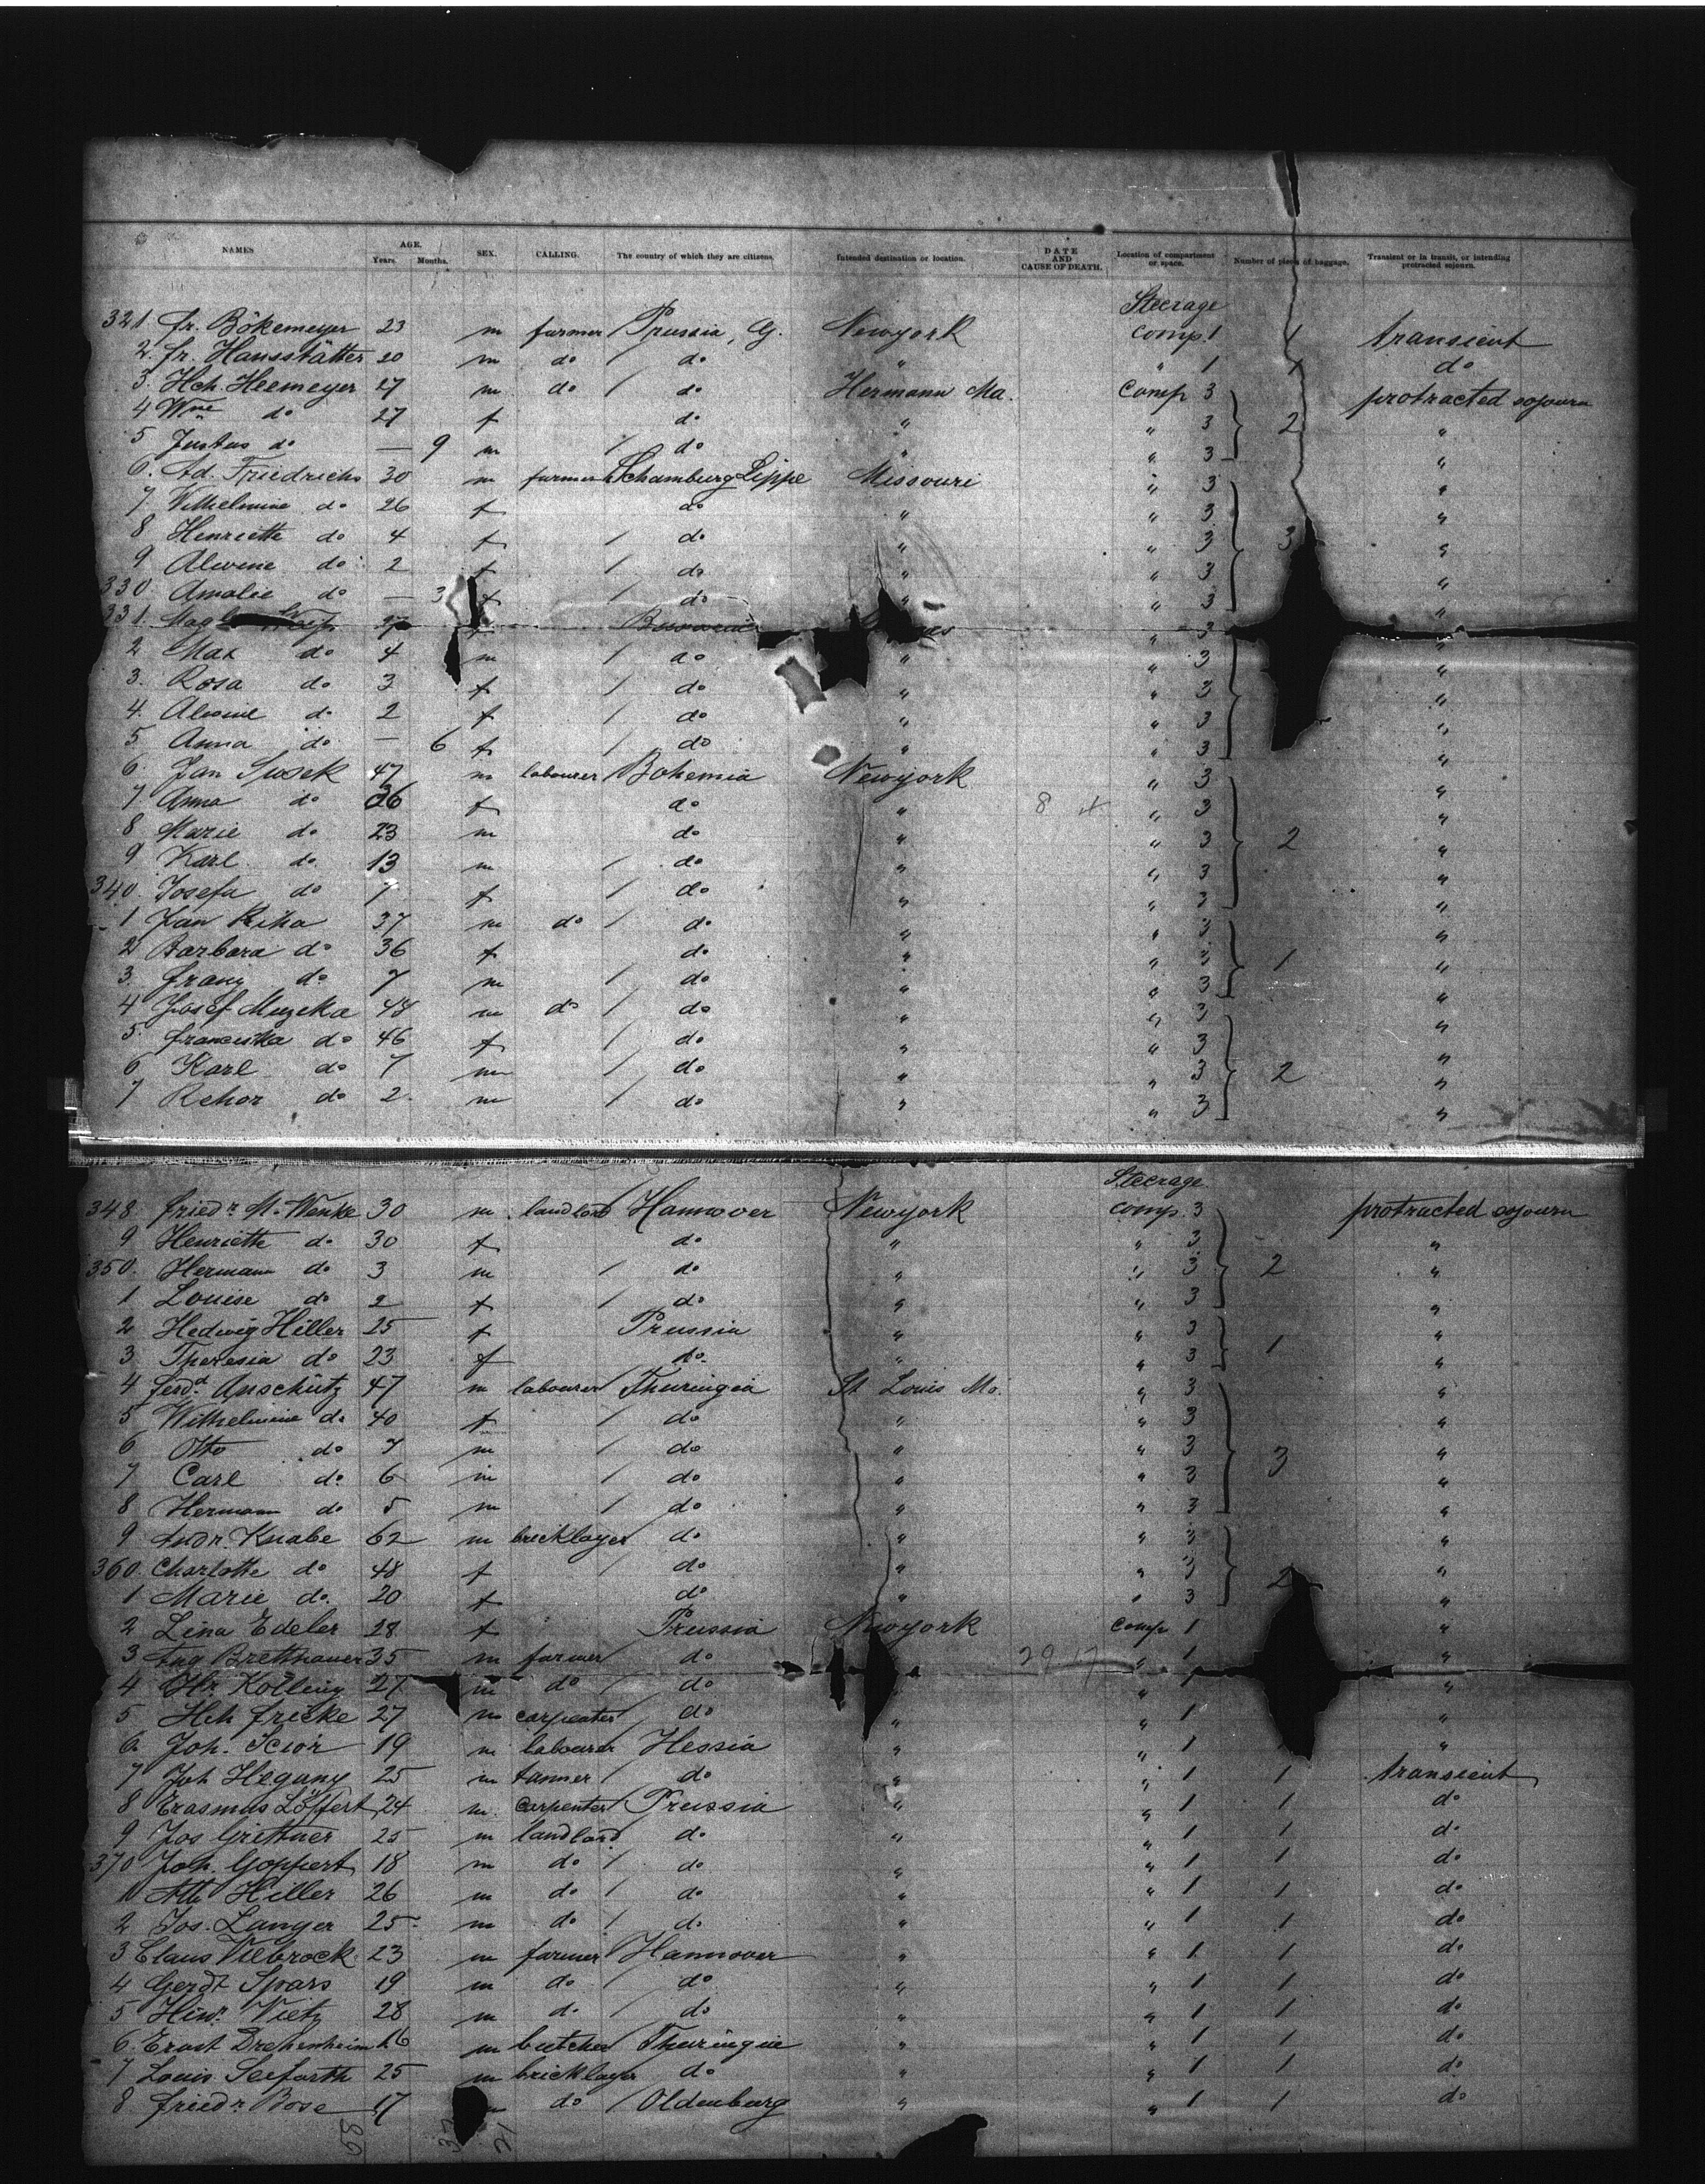 NAMES AGE. Years. Months. SEX. CALLING. The country of which they are citizens. Intended destination or location. DATE AND CAUSE OF DEATH. Location of compartment or space. Number of pieces of baggage. Transient or in transit, or intending protracted sojourn.
Steerage
321 Fr. Bökemeyer 23 m farmer Prussia, G. Newyork comp. 1 1 transient
2. Fr. Hansstätter 20 m do / do " " 1 1 do
3. Hch. Heemeyer 27 m do / do Hermann Ma. Comp 3 protracted sojourn
4 Wne do 27 f do " " 3 2 "
5 Justus do — 9 m / do " " 3 "
6. Ad. Friedrichs 30 m farmer Schamburg Lippe Missouri " 3 "
7 Wilhelmine do 26 f do " " 3 "
8 Henriette do 4 f / do " " 3 3 "
9 Alwine do 2 f / do " " 3 "
330 Amalie do — 3 f / do " " 3 "
331. f " 3 "
2 Max do 4 m / do " " 3 "
3. Rosa do 3 f / do " " 3 "
4. Alwine do 2 f / do " " 3 "
5 Anna do — 6 f / do " " 3 "
6. Jan Susek 47 m labourer Bohemia Newyork " 3 "
7 Anna do 36 f do " 8 " 3 "
8 Marie do 23 m do " " 3 2 "
9 Karl do 13 m / do " " 3 "
340. Josefa do 7 f / do " " 3 "
1 Jan Riha 37 m do / do " " 3 "
2 Barbara do 36 f do " " 3 1 "
3. Franz do 7 m / do " " 3 "
4 Josef Muzeka 48 m do / do " " 3 "
5. Franciska do 46 f / do " " 3 "
6 Karl do 7 m / do " " 3 2 "
7 Rehor do 2 m / do " " 3 "
Steerage
348. Friedr. M. Wenke 30 m landlord Hannover Newyork comp. 3 protracted sojourn
9 Henriette do 30 f do " " 3 "
350. Hermann do 3 m / do " " 3 2 "
1 Louise do 2 f / do " " 3 "
2 Hedwig Hiller 25 f Prussia " " 3 "
3 Theresia do 23 f do " " 3 1 "
4 Ferd. Anschütz 47 m labourer Thuringia St Louis Mo. " 3 "
5 Wilhelmine do 40 f / do " " 3 "
6 Otto do 7 m / do " " 3 "
7 Carl do 6 m / do " " 3 3 "
8 Hermann do 5 m / do " " 3 "
9 Andr. Knabe 62 m bricklayer do " " 3 "
360. Charlotte do 48 f / do " " 3 "
1 Marie do. 20 f do " " 3 2 "
2 Lina Edeler 28 f Prussia Newyork comp 1 "
3 Aug Bretthauer 35 m farmer do " 1 "
4 Hr Kölling 27 m do / do " " 1 "
5 Hch Fricke 27 m carpenter do " " 1 "
6. Joh. 19 m labourer Hessia " " 1 "
7 Joh Hegany 25 m tanner / do " " 1 1 transient
8 Erasmus Löffert 24 m. carpenter Prussia " " 1 1 do
9 Jos Grettner 25 m landlord do " " 1 1 do
370 Joh. Goppert 18 m do / do " " 1 1 do
1 Hiller 26 m do / do " " 1 1 do
2 Jos. Langer 25 m do / do " " 1 1 do
3 Claus Viebrock 23 m farmer Hannover " " 1 1 do
4 Gerdt Spars 19 m do / do " " 1 1 do
5 Hinr. Vietz 28 m do / do " " 1 1 do
6. Ernst Drehenheim 16 m butcher Thuringia " " 1 1 do
7 Louis Seeforth 25 m bricklayer do " " 1 1 do
8 Friedr. Bose 17 do / Oldenburg " " 1 1 do
58 21